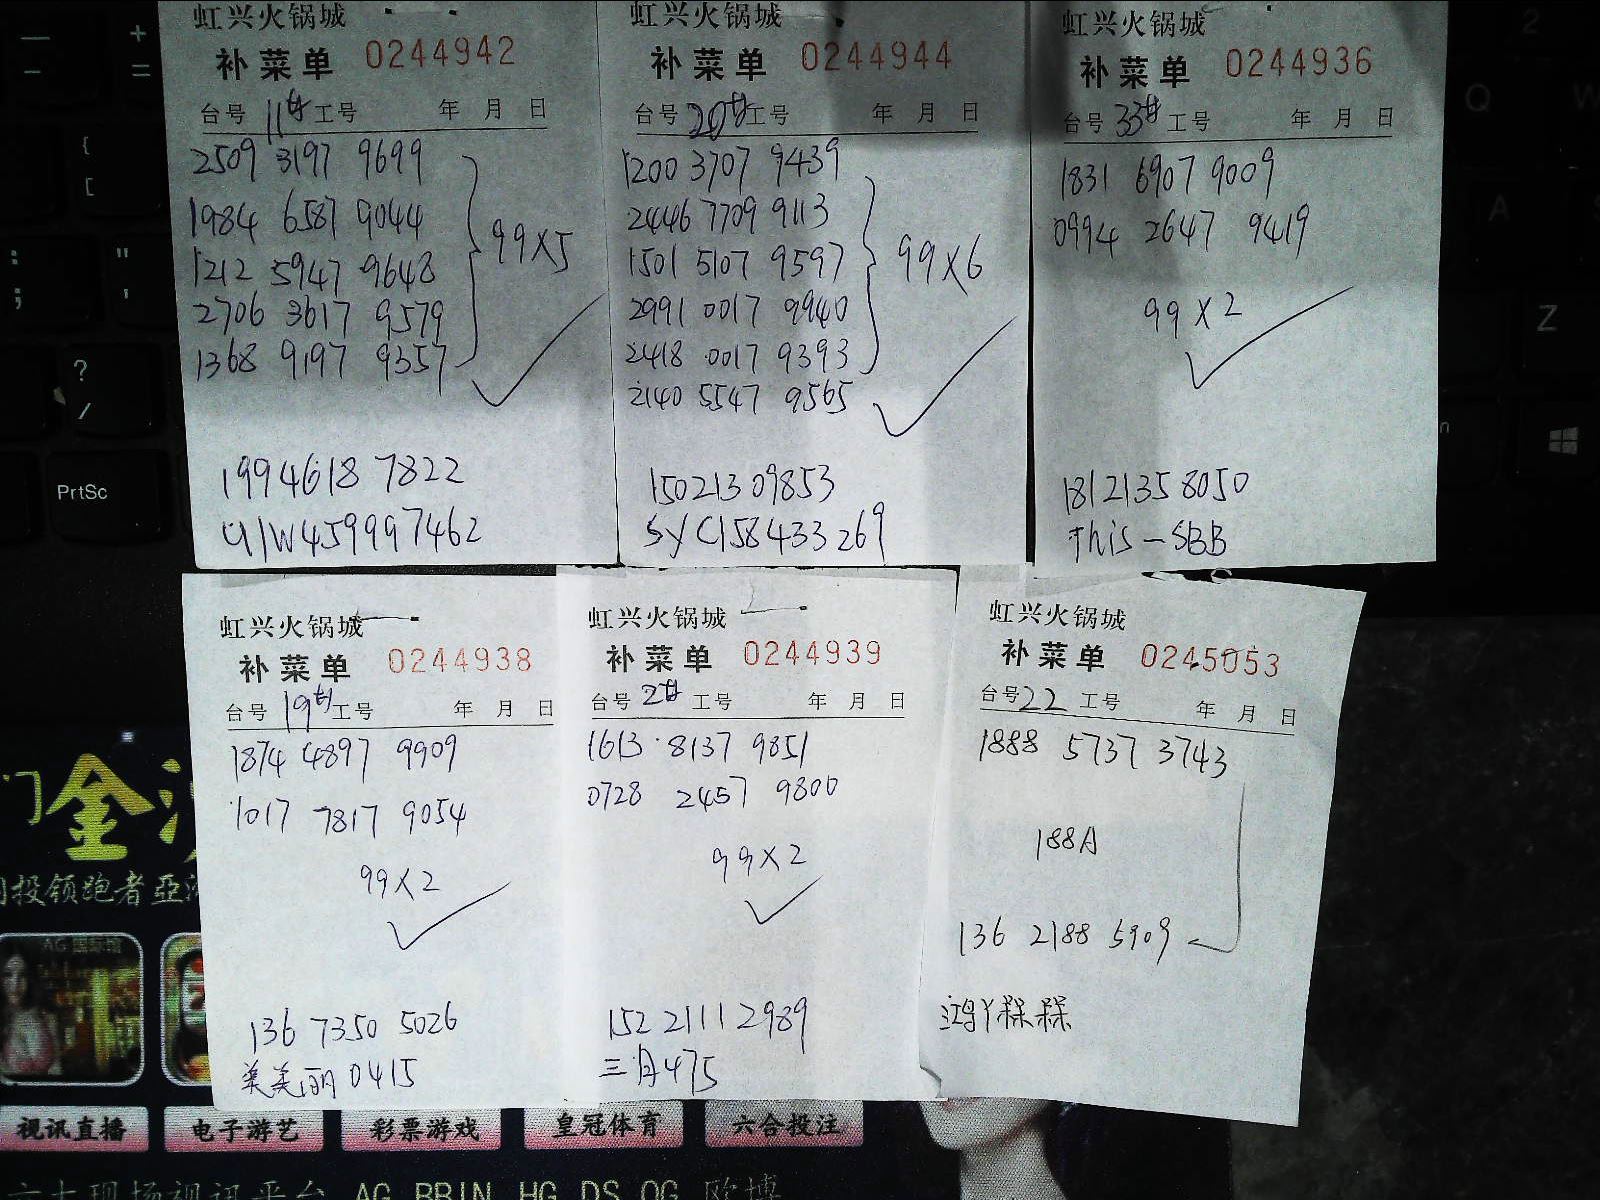 虹兴火锅城
补菜单 0244942
台号 11# 工号 年 月 日
2509 3197 9699
1984 6587 9044
1212 5947 9648
2706 3617 9579
1368 9197 9357
99×5
19946187822
U1W459997462
虹兴火锅城
补菜单 0244944
台号 20# 工号 年 月 日
1200 3707 9439
2446 7709 9113
1501 5107 9597
2991 0017 9940
2418 0017 9393
2140 5547 9565
99×6
15021309853
SyC158433269
虹兴火锅城
补菜单 0244936
台号 33# 工号 年 月 日
1831 6907 9009
0994 2647 9419
99×2
18121358050
this-SBB
虹兴火锅城
补菜单 0244938
台号 19# 工号 年 月 日
1874 4897 9909
1017 7817 9054
99×2
136 7350 5026
美美丽0415
虹兴火锅城
补菜单 0244939
台号 2# 工号 年 月 日
1613 8137 9851
0728 2457 9800
99×2
152 2111 2989
三月475
虹兴火锅城
补菜单 0245053
台号 22 工号 年 月 日
1888 5737 3743
188A
136 2188 5909
鸿丫槑槑
PrtSc
门金
投领跑者亞
视讯直播
电子游艺
彩票游戏
皇冠体育
六合投注
六大现场视讯平台 AG BBIN HG DS OG 欧博